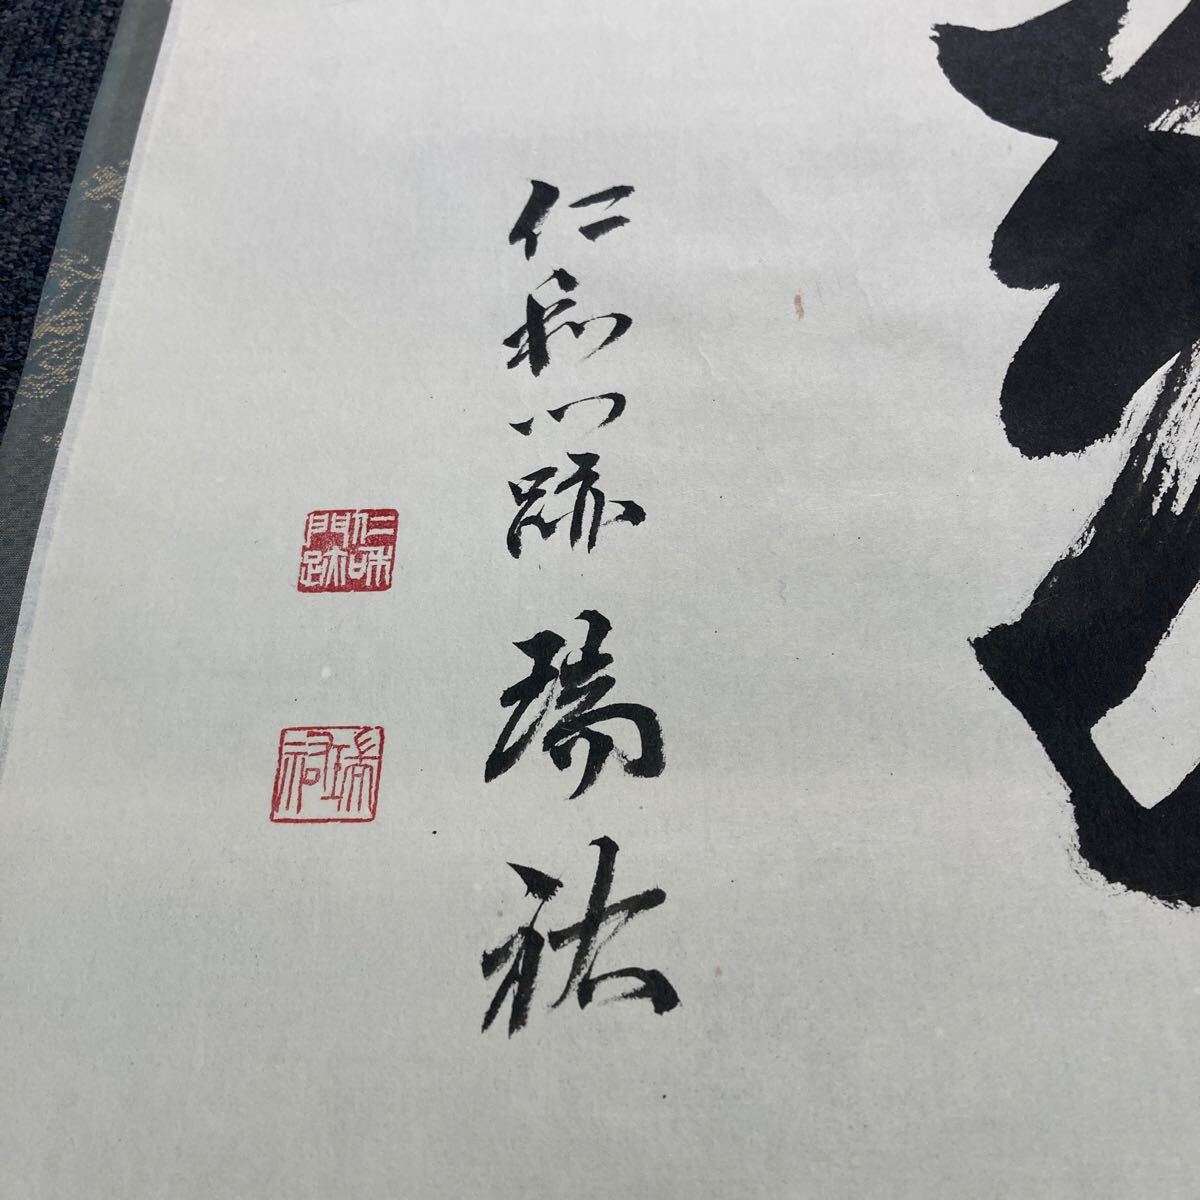 仁和門跡 瑞祐
仁和門跡
瑞祐